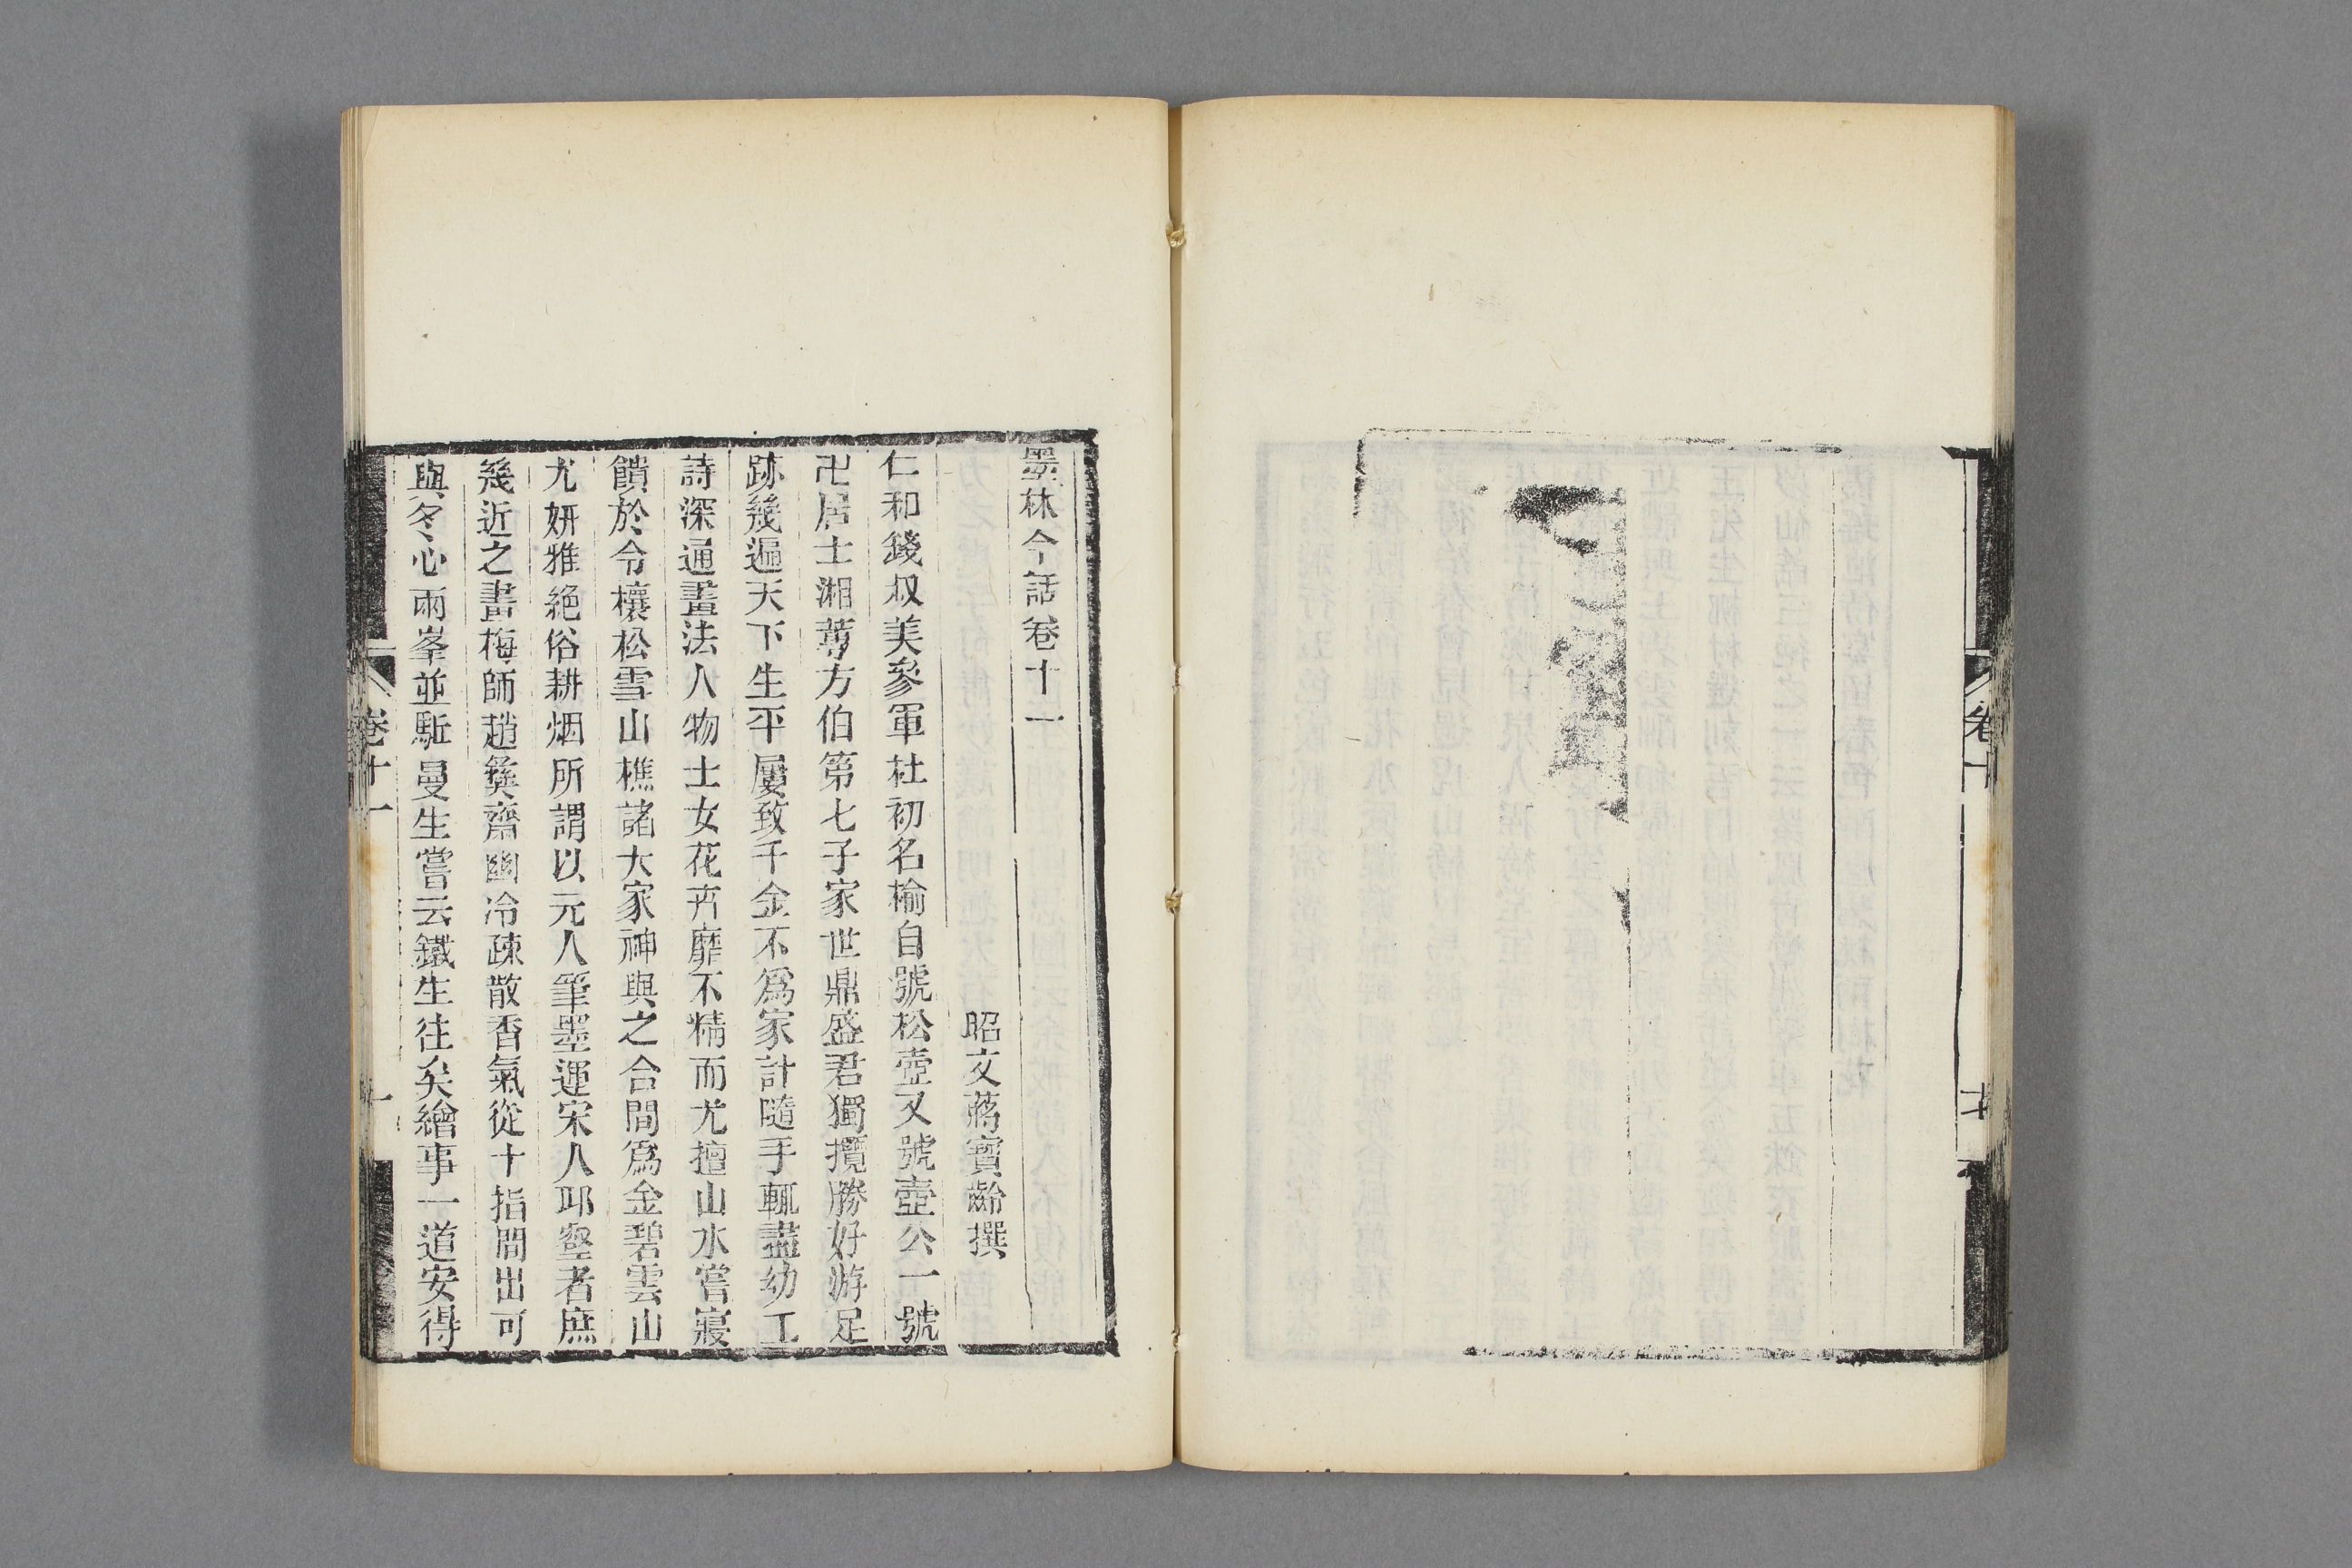 卷十
墨林今話卷十一
昭文蔣寶齡撰
仁和錢叔美參軍杜初名榆自號松壺又號壺公一號
卍居士湘蓴方伯第七子家世鼎盛君獨攬勝好游足
跡幾遍天下生平屢致千金不爲家計隨手輒盡幼工
詩深通畫法人物士女花卉靡不精而尤擅山水嘗寢
饋於令欀松雪山樵諸大家神與之合間爲金碧雲山
尤妍雅絕俗耕烟所謂以元人筆墨運宋人邱壑者庶
幾近之畫梅師趙彝齋幽冷疎散香氣從十指間出可
與冬心兩峯並駈曼生嘗云鐵生往矣繪事一道安得
卷十一
一